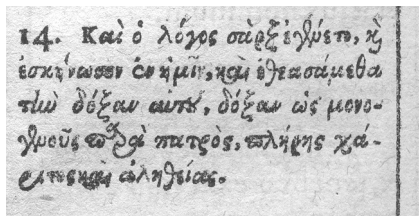 14. Καὶ ὁ λόγος σὰρξ ἐγένετο, καὶ
ἐσκήνωσεν ἐν ἡμῖν, καὶ ἐθεασάμεθα
τὴν δόξαν αυτοῦ, δόξαν ὡς μονο-
γενοῦς παρὰ πατρὸς, πλήρης χά-
ριτος καὶ ἀληθείας.